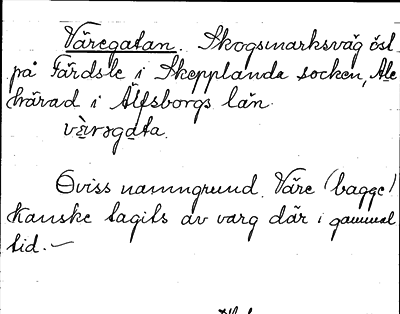 Väregatan. Skogsmarksväg öst
på Färdsle i Skepplanda socken, Ale
härad i Älfsborgs län.
Oviss namngrund. Väre (bagge)
kanske tagits av varg där i gammal
tid.—